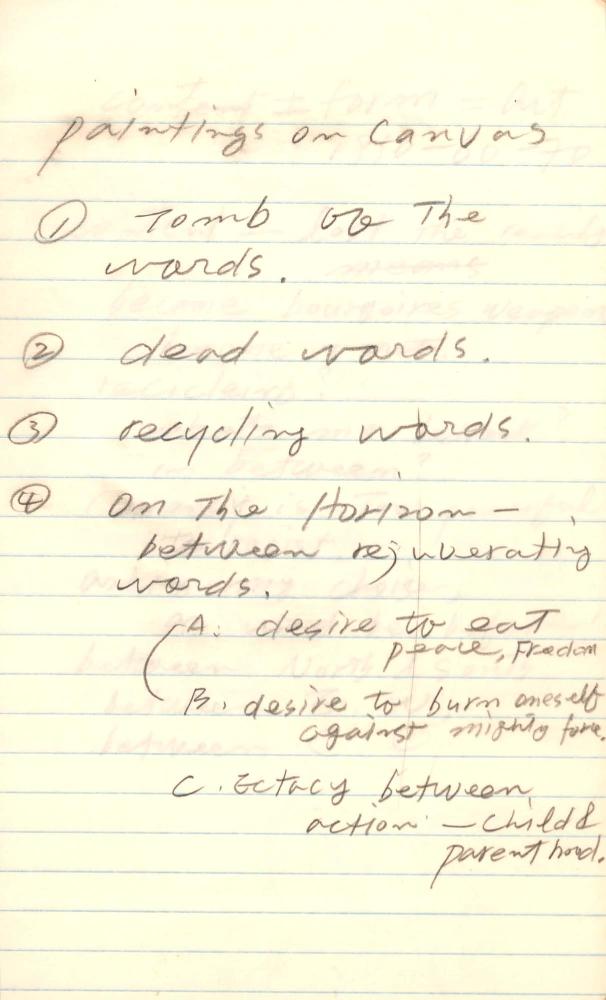 paintings on Canvas
① Tomb of The
words.
② dead words.
③ recycling words.
④ on The Horizon —
between rejuverating
words.
A. desire to eat
peace, Freedom
B. desire to burn oneself
against mighty force.
C. Ectacy between
action — child &
parenthood.